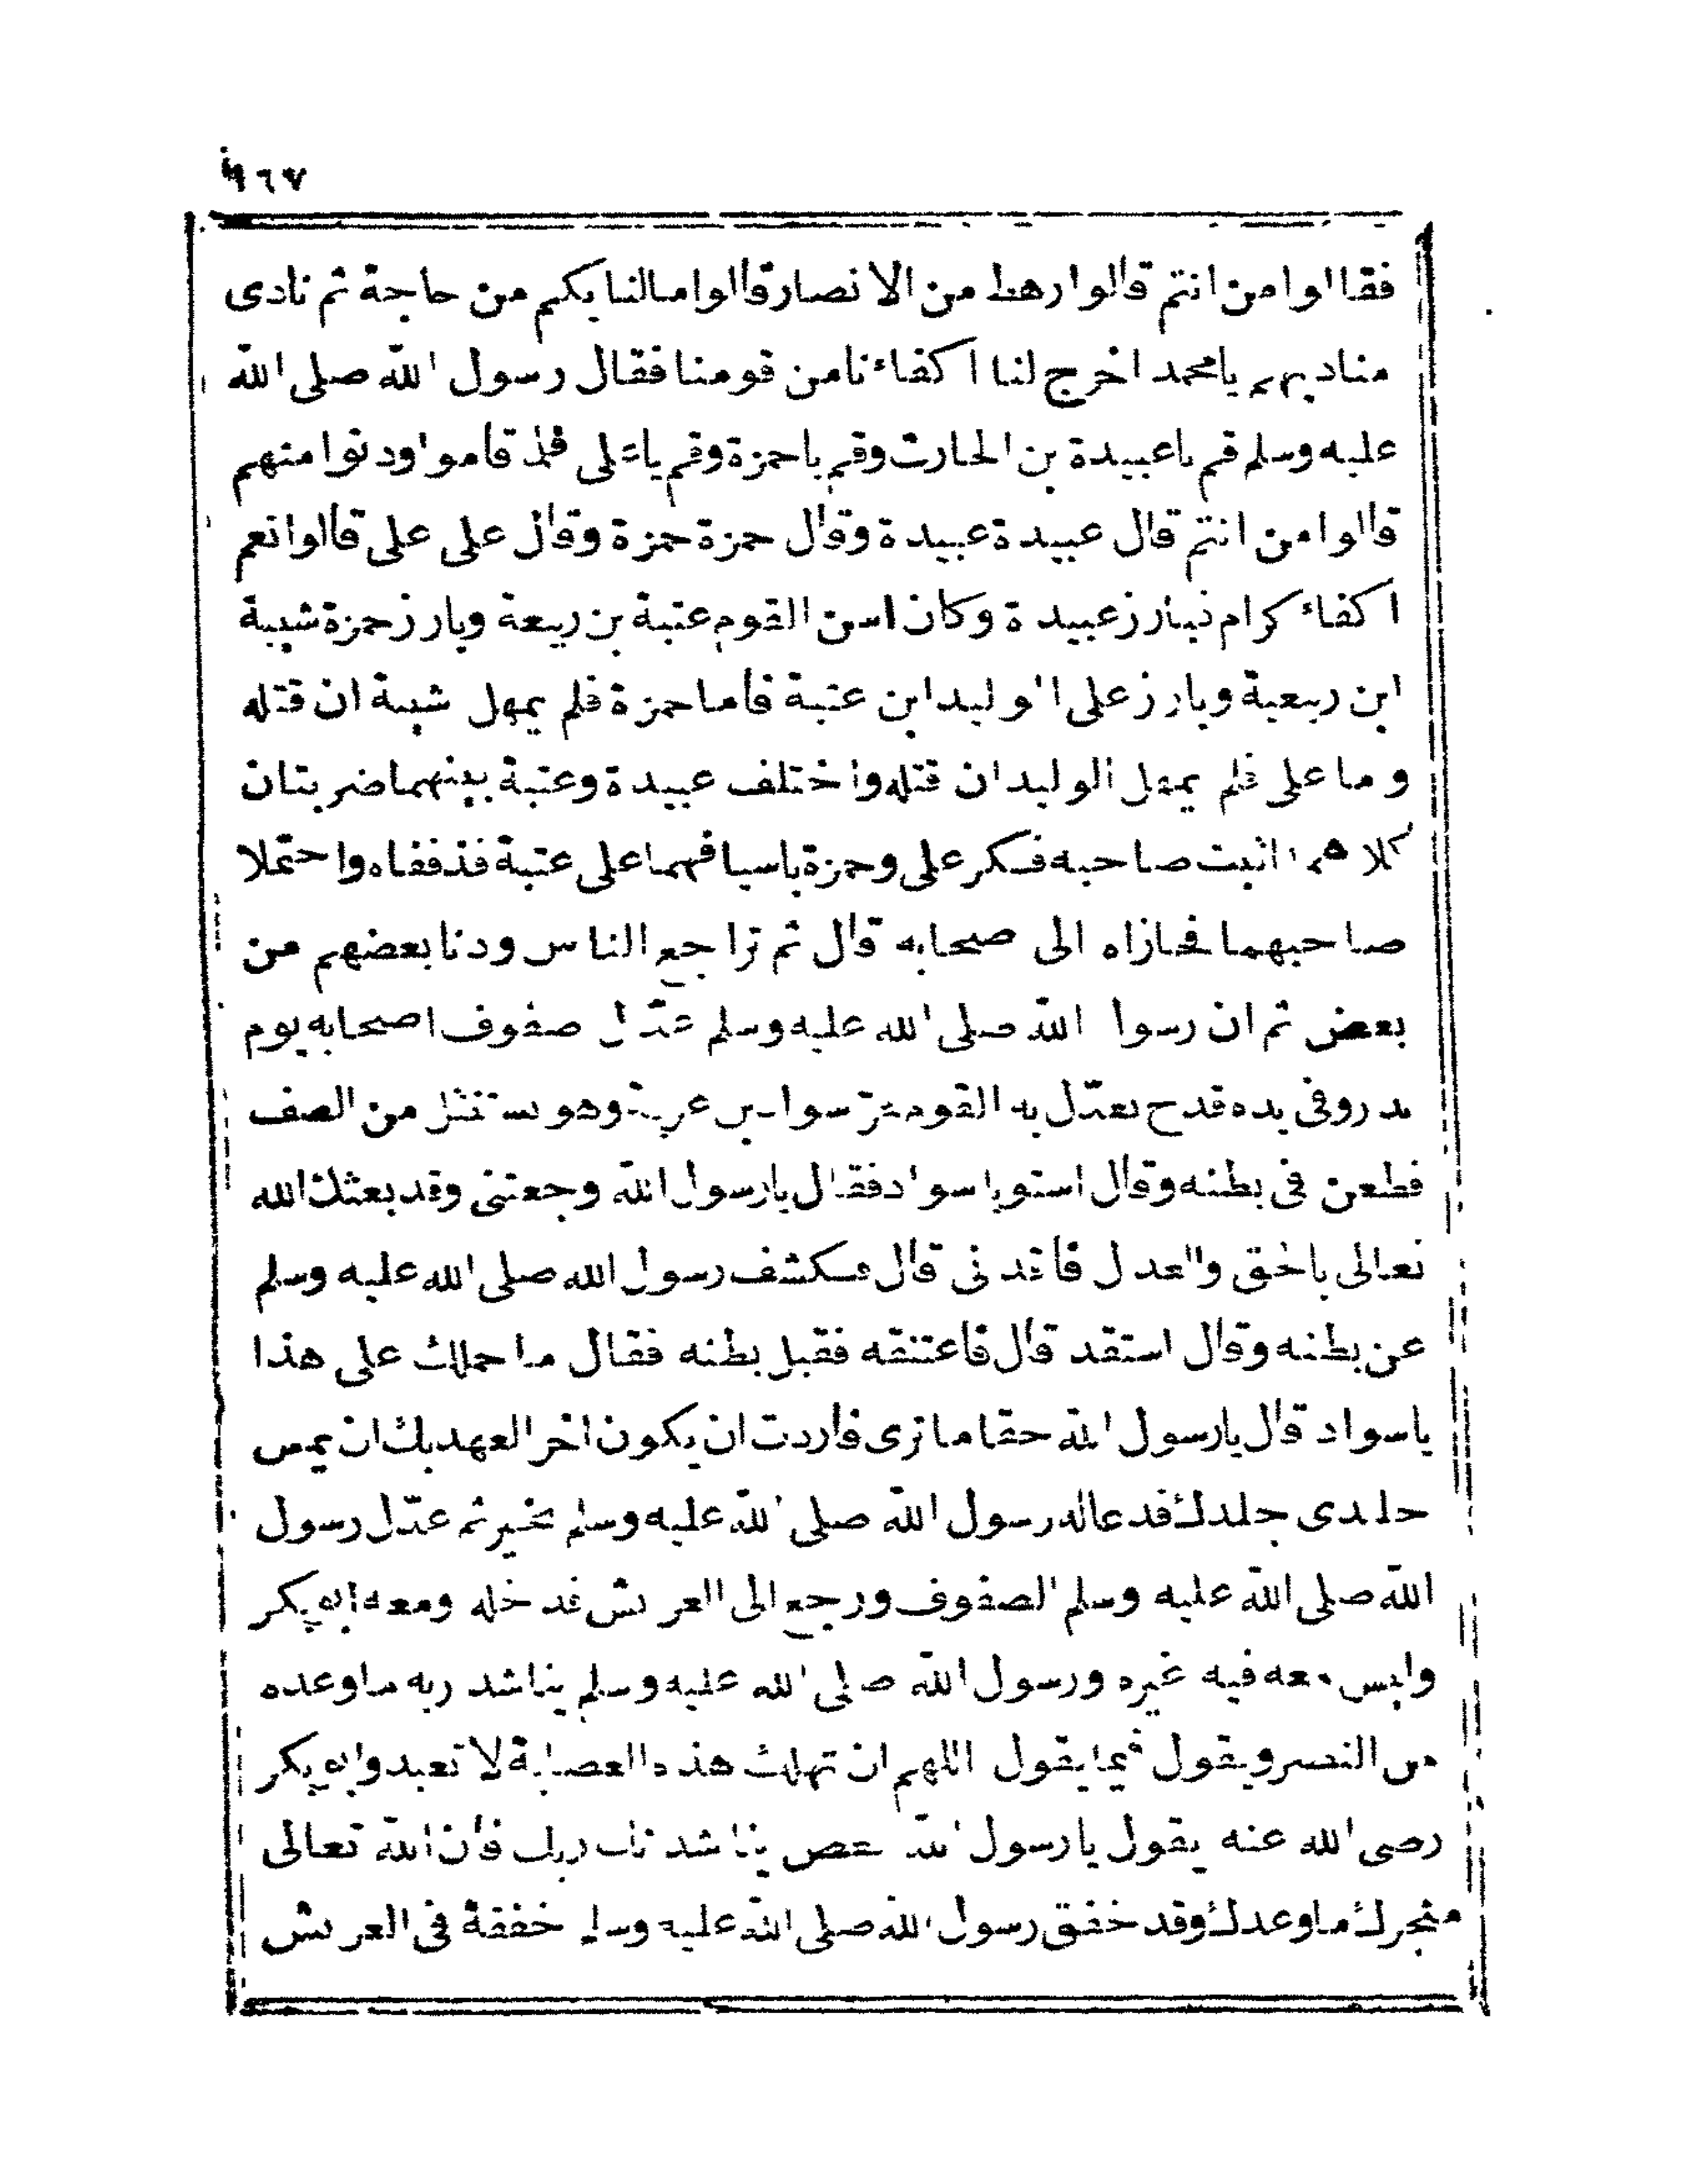 ٩٦٧
فقالوا من انتم قالوا رهط من الانصار قالوا مالنا بكم من حاجة ثم نادى
مناديهم يا محمد اخرج لنا اكفاءنا من قومنا فقال رسول الله صلى الله
عليه وسلم قم يا عبيدة بن الحارث وقم يا حمزة وقم يا على فلما قاموا ودنوا منهم
قالوا من انتم قال عبيدة عبيدة وقال حمزة حمزة وقال على على قالوا نعم
اكفاء كرام فبارز عبيدة وكان اسن القوم عتبة بن ربيعة وبارز حمزة شيبة
ابن ربيعة وبارز على الوليد ابن عتبة فأما حمزة فلم يمهل شيبة ان قتله
وما على فلم يمهل الوليد ان قتله واختلف عبيدة وعتبة بينهما ضربتان
كلاهما اثبت صاحبه فكر على وحمزة باسيافهما على عتبة فذففاه واحتملا
صاحبهما فحازاه الى صحابه قال ثم تراجع الناس ودنا بعضهم من
بعض ثم ان رسول الله صلى الله عليه وسلم عدّل صفوف اصحابه يوم
بدر وفى يده قدح يعدّل به القوم فمرّ بسواد بن غزية وهو مستنتل من الصف
فطعن فى بطنه وقال استو يا سواد فقال يا رسول الله وجعتنى وقد بعثك الله
تعالى بالحق والعدل فأقدنى قال فكشف رسول الله صلى الله عليه وسلم
عن بطنه وقال استقد قال فاعتنقه فقبل بطنه فقال ما حملك على هذا
يا سواد قال يا رسول الله حقا ما ترى فأردت ان يكون اخر العهد بك ان يمس
جلدى جلدك فدعا له رسول الله صلى الله عليه وسلم بخير ثم عدّل رسول
الله صلى الله عليه وسلم الصفوف ورجع الى العريش فدخله ومعه ابو بكر
وليس معه فيه غيره ورسول الله صلى الله عليه وسلم يناشد ربه ما وعده
من النصر ويقول فيما يقول اللهم ان تهلك هذه العصابة لا تعبد وابو بكر
رضى الله عنه يقول يا رسول الله بعض يناشدتك ربك فأن الله تعالى
منجز لك ما وعدك وقد خفق رسول الله صلى الله عليه وسلم خفقة فى العريش